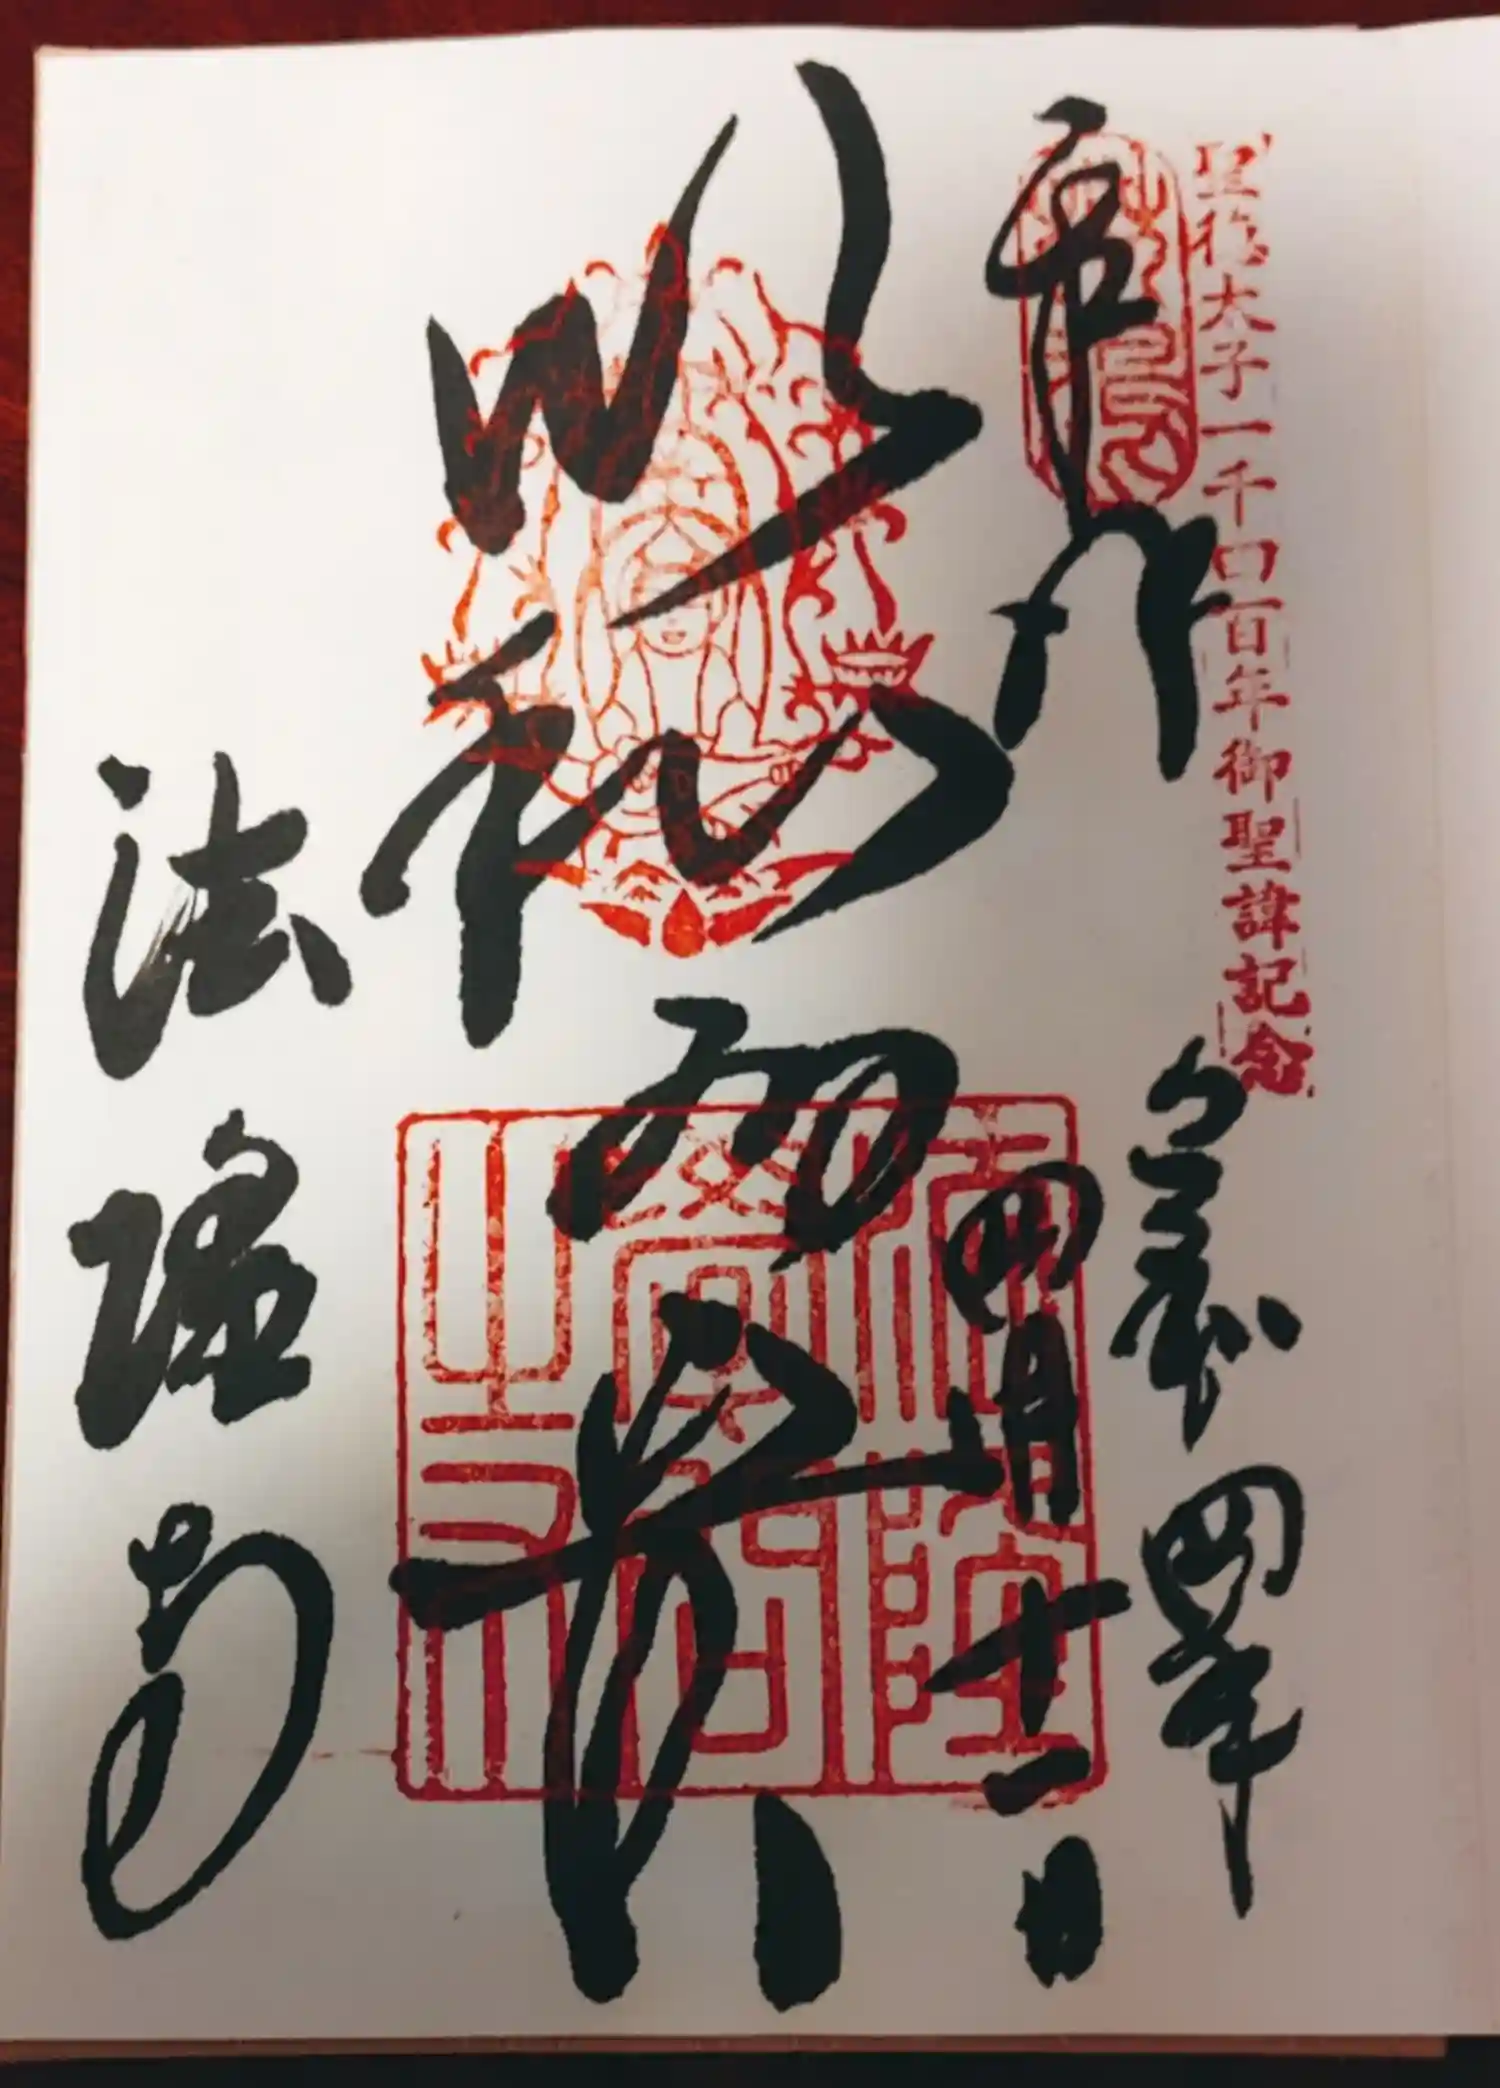 聖徳太子一千四百年御聖諱記念
奉拝
令和四年
四月十一日
以和為貴
法隆寺